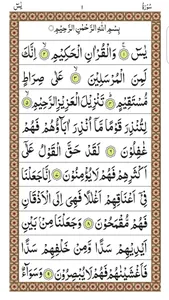 سُوْرَة ١ يٰسٓ
بِسْمِ اللهِ الرَّحْمٰنِ الرَّحِيْمِ
يٰسٓ ۝ وَالْقُرْاٰنِ الْحَكِيْمِ ۝ اِنَّكَ
لَمِنَ الْمُرْسَلِيْنَ ۝ عَلٰى صِرَاطٍ
مُّسْتَقِيْمٍ ۝ تَنْزِيْلَ الْعَزِيْزِ الرَّحِيْمِ ۝
لِتُنْذِرَ قَوْمًا مَّاۤ اُنْذِرَ اٰبَآؤُهُمْ فَهُمْ
غٰفِلُوْنَ ۝ لَقَدْ حَقَّ الْقَوْلُ عَلٰۤى
اَكْثَرِهِمْ فَهُمْ لَا يُؤْمِنُوْنَ ۝ اِنَّا جَعَلْنَا
فِيْۤ اَعْنَاقِهِمْ اَغْلٰلًا فَهِيَ اِلَى الْاَذْقَانِ
فَهُمْ مُّقْمَحُوْنَ ۝ وَجَعَلْنَا مِنْۢ بَيْنِ
اَيْدِيْهِمْ سَدًّا وَّمِنْ خَلْفِهِمْ سَدًّا
فَاَغْشَيْنٰهُمْ فَهُمْ لَا يُبْصِرُوْنَ ۝ وَسَوَآءٌ